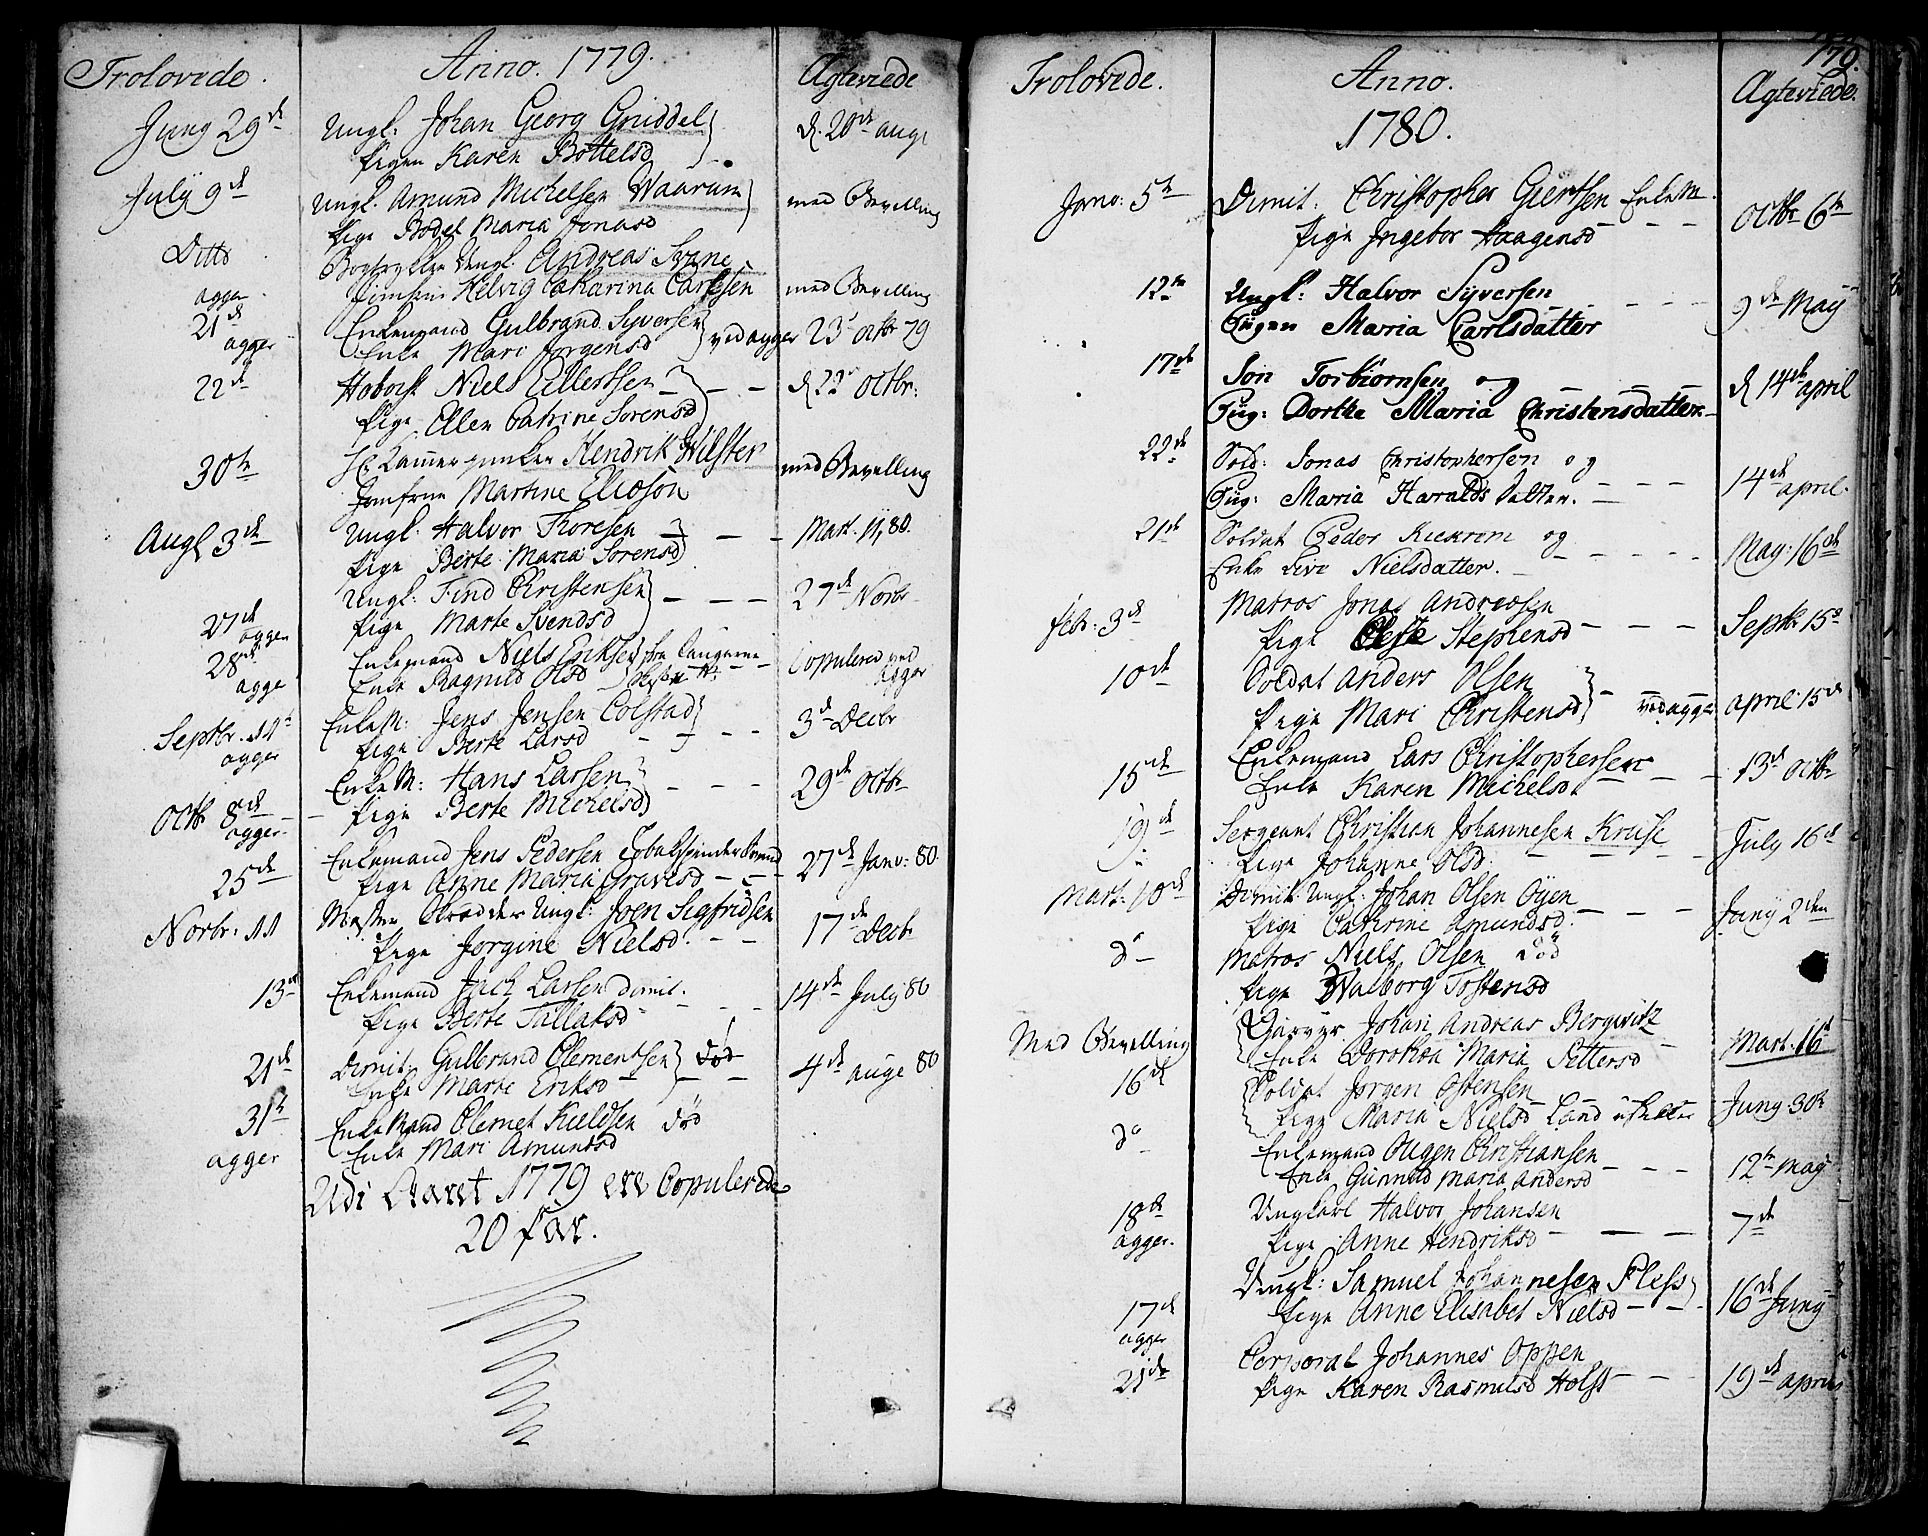 Trolovede.
Anno. 1779.
Ægteviede
Juny 29de
Ungl. Johan Georg Griddel
d. 20de aug
Pigen Karen Bottelsd
July 9de
Ungl. Amund Michelsen Waarum
med Bevilling
Pige Bodel Maria Jonasd
Ditto
Bogtrykker Ungl. Andreas Svane
agger
Jomfrue Helvig Catharina Carlsen
med Bevilling
21de
agger
Enkemand Gulbrand Syversen
Enke Mari Jørgensd
ved agger 23 octbr 79
22de
Hoboist Niels Ellertsen
d 22 octbr:
Pige Ellen Catrine Sorensd
30te
Hr. Cammerjunker Hendrik Wilster
med Bevilling
Jomfrue Martine Elieson
Augl 3de
Ungl: Halvor Thoresen
Mart. 11, 80.
Pige Berte Maria Sorensd
Ungl: Find Christensen
27de Novbr
27de
agger
Pige Marte Svendsd
28de
agge
Enkemand Niels Eriksen fra Langerne
Copulered ved agger
Enke Ragnild Olsd
Septbr. 14de
agger
EnkeM: Jens Jensen Colstad
3de Decbr
Pige Berte Larsd
EnkeM: Hans Larsen
29de Octbr
Octbr 8de
agger
Pige Berte Michelsd
25de
Enkemand Jens Pedersen Tobakspinder Svend
27de Janv: 80.
Pige Anne Maria Gravesd
Novbr. 11
Mester Skrædder Ungl: Joen Sigfridsen
17de Decbr
Pige Jorgine Nielsd.
13de
Enkemand Jach Larsen dimit.
14de July 80
Pige Berte Tallaksd
21de
Dimit. Gulbrand Clementsen død
4de auge 80
Enke Marte Eriksd
31te
agger
EnkeMand Clemet Kieldsen død
Enke Mari Amundsd
Udi Aaret 1779 ere Copulerede
20 Par.
179.
Trolovede.
Anno.
1780.
Ægteviede.
Janv: 5te
Dimit: Christopher Giertsen EnkeM.
octbr 6te
Pige Ingebor Haagensd
12te
Ungl: Halvor Syversen
9de May
Pigen Maria Carlsdatter
17de
Jon Torbiornsen og
d 14de april
Pig: Dorthe Maria Christensdatter
22de
Sold: Jonas Christophersen og
14de april.
Pig: Maria Haralds Datter.
21de
Soldat Peder og
May: 16de
Enke Live Nielsdatter.
Febr: 3de
Matros Jonas Andreasen
Septbr 15de
Pige Stephensd
10de
Soldat Anders Olsen
ved agger
april 15de
Pige Mari Christensd
15de
Enkemand Lars Christophersen
13de octbr
Enke Karen Michelsd.
19de
Sergeant Christian Johannesen Kruse
July 16de
Pige Johanne Olsd.
Mart: 10de
Dimit: Ungl: Johan Olsen Oyen
Juny 2den
Pige Catrine Amundsd.
do
Matros Niels Olsen død
Pige Walborg Tostensd
Med Bevilling
Garver Johan Andreas Bergwitz
Mart: 16de
Enke Dorothea Maria Pettersd
16de
Soldat Jorgen Ostensen
Juny 30te
Pige Maria Nielsd Land
do
Enkemand Ougen Christiansen
12te may
Enke Gunnild Maria Andersd
18de
agger.
Ungkarl Halvor Johansen
7de
Pige Anne Hendriksd
17de
agger
Ungl: Samuel Johannesen Pless
16de Juny
Pige Anne Elisabet Nielsd
21de
Corporal Johannes Oppen
19de april
Pige Karen Rasmusd Holst